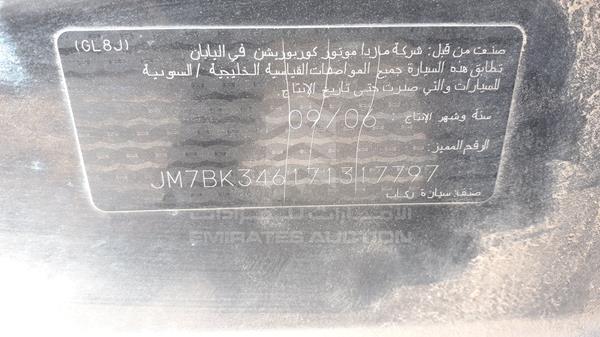 صنعت من قبل: شركة مازدا موتور كوربوريشن في اليابان
(GL8J)
تطابق هذه السيارة جميع المواصفات القياسية الخليجية / السعودية
للسيارات والتي صدرت حتى تاريخ الإنتاج
سنة وشهر الإنتاج : 09/06
الرقم المميز:
JM7BK346171317797
صنف: سيارة ركاب
الإمارات للمزادات
EMIRATES AUCTION